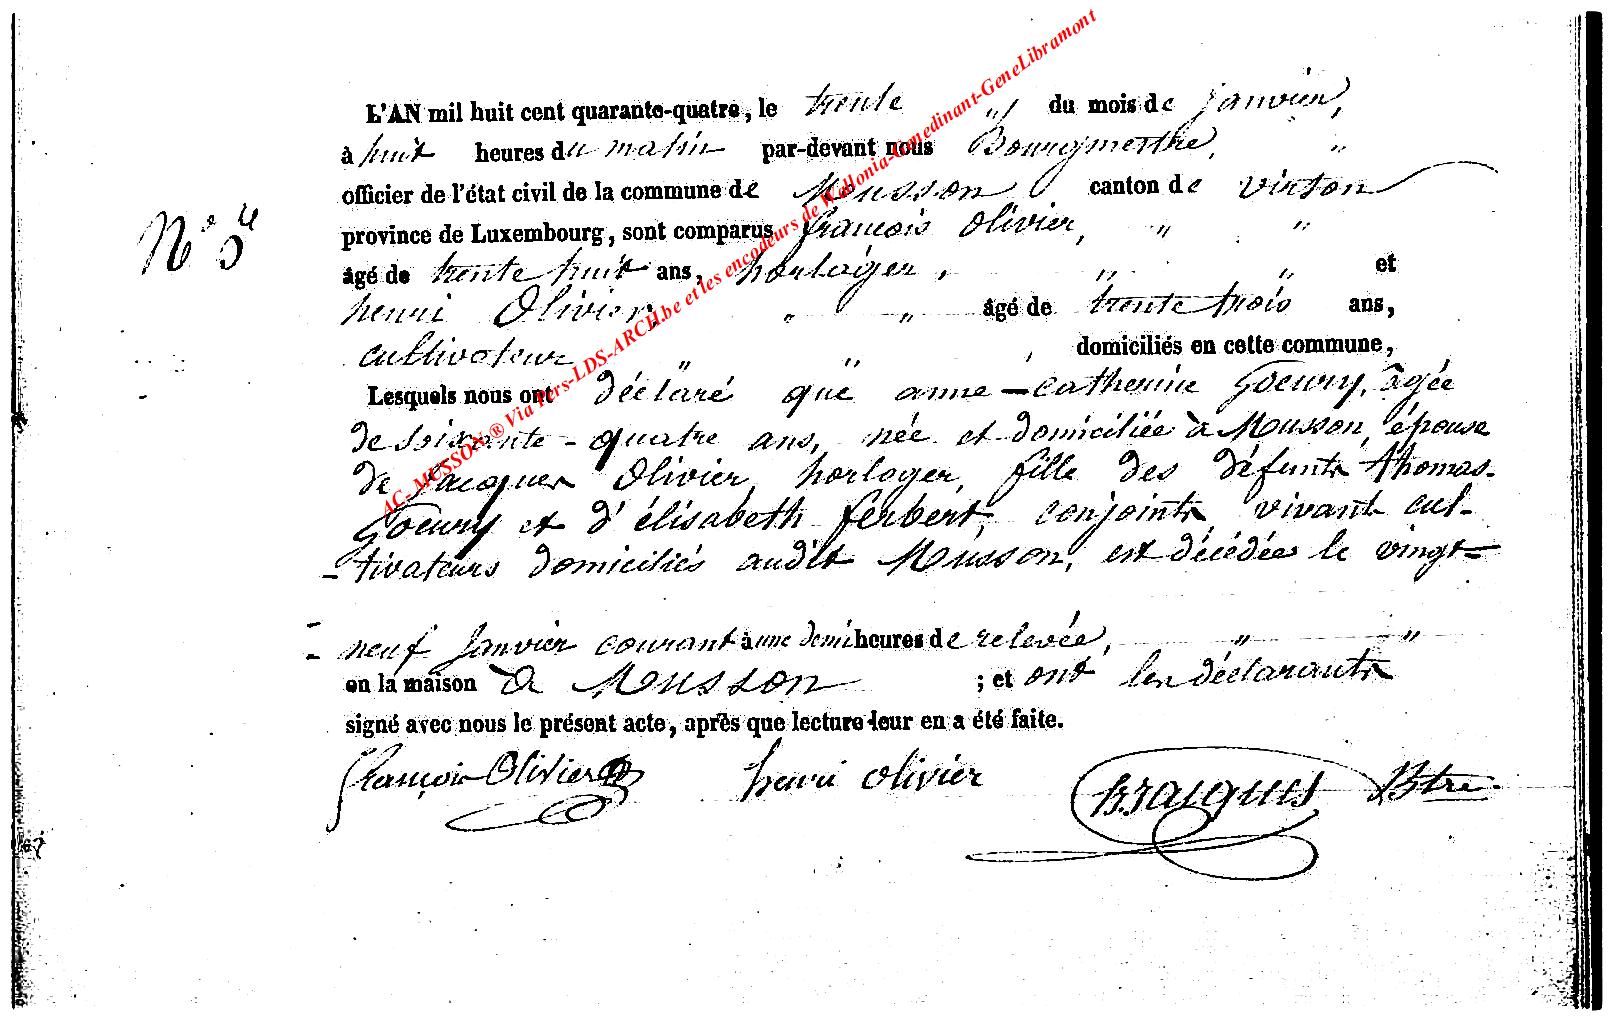 L'AN mil huit cent quarante-quatre, le trente " du mois de janvier,
à huit heures du matin par-devant nous Bourgmestre, "
officier de l'état civil de la commune de Musson canton de virton
N° 5
province de Luxembourg, sont comparus françois Olivier, " "
âgé de trente huit ans, horloger, " " et
henri Olivier, " " âgé de trente trois ans,
cultivateur " " , domiciliés en cette commune,
Lesquels nous ont déclaré que anne-catherine Goeury, agée
de soixante-quatre ans, née et domiciliée à Musson, épouse
de Jacques Olivier, horloger, fille des défunts thomas-
Goeury et d'élisabeth ferbert, conjoints, vivant cul-
-tivateurs domiciliés audit Musson, est décédée le vingt-
neuf Janvier courant à une demi heures de relevée, " "
en la maison à Musson ; et ont les déclarants
signé avec nous le présent acte, après que lecture leur en a été faite.
françois Olivier henri olivier Btre
AC-MUSSON ® Via Pers-LDS-ARCH.be et les encodeurs de Wallonia-Genedinant-GeneLibramont